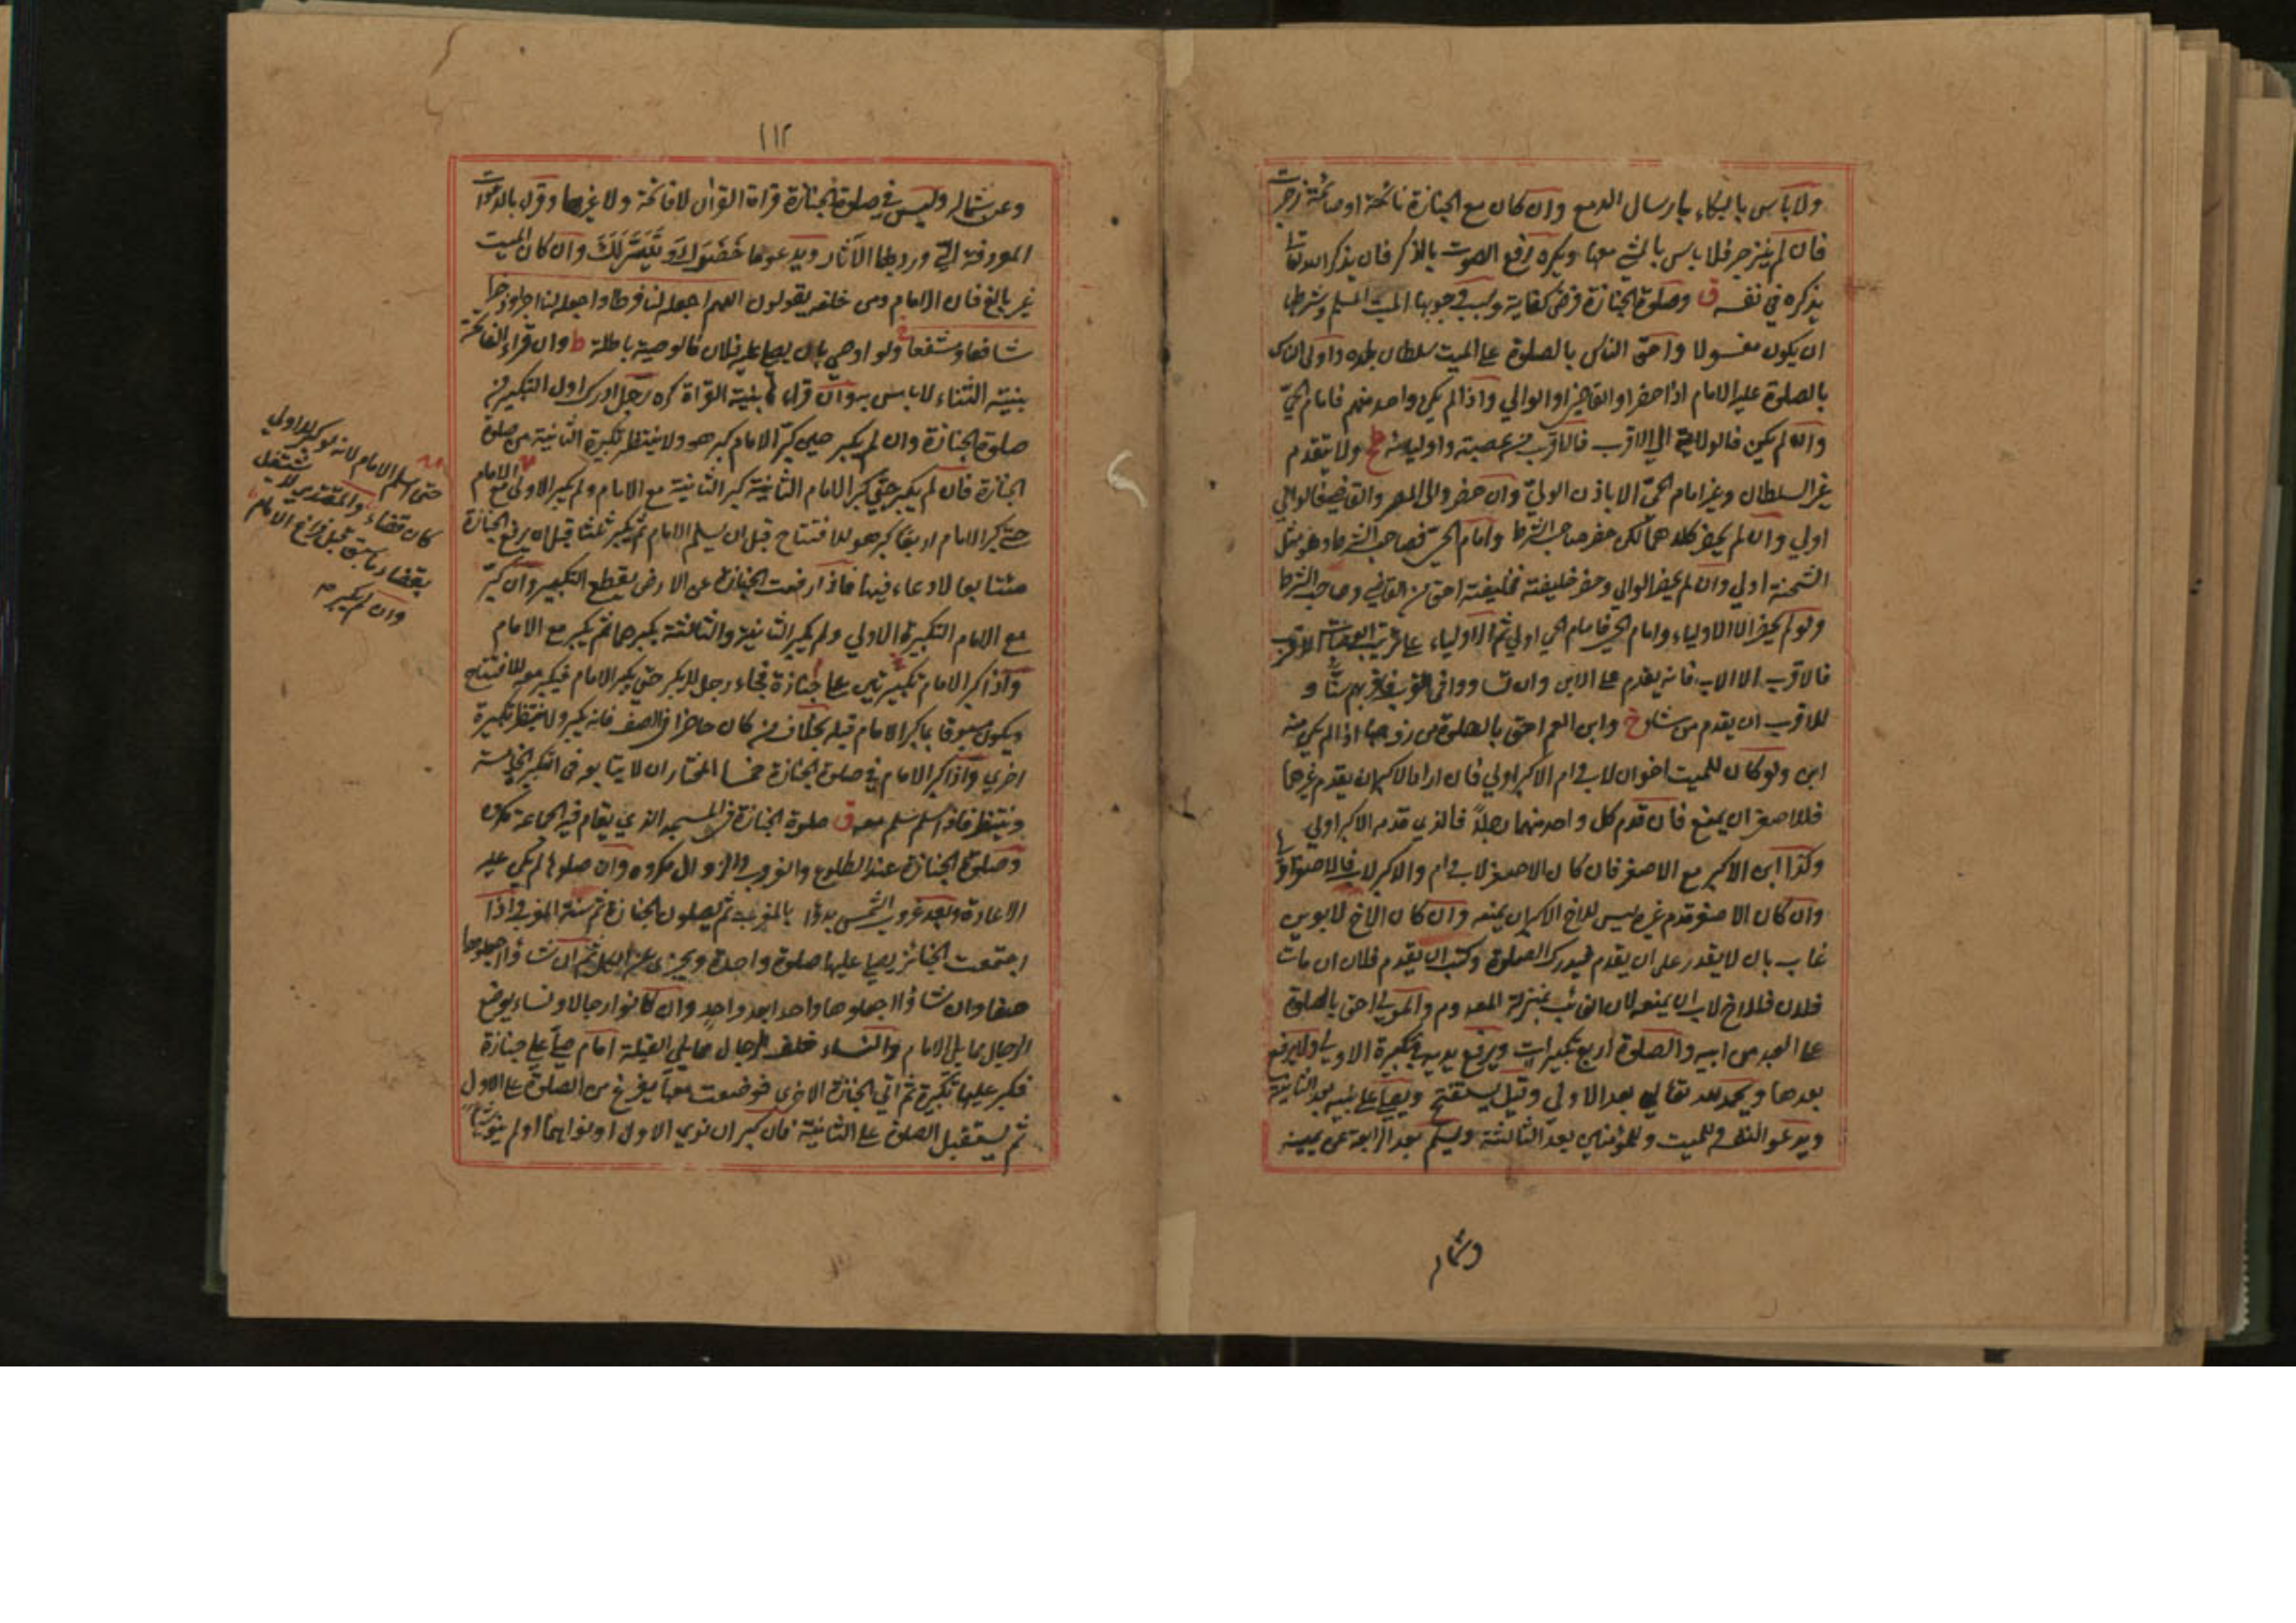 ولا باس بالبكاء بارسال الدمع وان كان مع الجنازة نائحة او صائحة زجرت
فان لم ينزجر فلا باس بالمشي معها ويكره رفع الصوت بالذكر فان يذكر الله تعا
يذكره في نفسه ق وصلوة الجنازة فرض كفاية وسبب وجوبها الميت المسلم وشرطها
ان يكون مغسولا واحق الناس بالصلوة على الميت سلطان بلده واولى الناس
بالصلوة عليه الامام اذا حضر او القاضي او الوالي واذا لم يكن واحد منهم فامام الحي
وان لم يكن فالولاية الى الاقرب فالاقرب من عصبته واوليائه ولا يتقدم
غير السلطان وغير امام الحي الا باذن الولي وان حضر والى المصر والقاضي فالوالي
اولى وان لم يحضر كلاهما لكن حضر صاحب الشرط وامام الحي فصاحب الشرط وهو مثل
الشحنة اولى وان لم يحضر الوالي وحضر خليفته فخليفته احق من القاضي وصاحب الشرط
ولو لم يحضر الا الاولياء وامام الحي فامام الحي اولى ثم الاولياء على ترتيب العصبات الاقرب
فالاقرب الا الاب فانه يقدم على الابن وان تساووا في القرب فاكبرهم سنا و
للاقرب ان يقدم من شاء خ وابن العم احق بالصلوة من زوجها اذا لم يكن منه
ابن ولو كان للميت اخوان لاب وام الاكبر اولى فان اراد الاكبر ان يقدم غيرهما
فللاصغر ان يمنع فان قدم كل واحد منهما رجلا فالذي قدمه الاكبر اولى
وكذا ابن الاكبر مع الاصغر فان كان الاصغر لاب وام والاكبر لاب فالاصغر اولى
وان كان الاصغر قدم غيره ليس للاخ الاكبر ان يمنعه وان كان الاخ لابوين
غاب بان لا يقدر على ان يقدم فيدرك الصلوة وكتب ان يقدم فلان ان مات
فلان فللاخ لاب ان يمنعه لان الغائب بمنزلة المعدوم والمولى احق بالصلوة
على العبد من ابيه والصلوة اربع تكبيرات ويرفع يديه في تكبيرة الاولى ولا يرفع
بعدها ويحمد الله تعالى بعد الاولى وقيل يستفتح ويصلي على نبيه بعد الثانية
ويدعو لنفسه وللميت وللمؤمنين بعد الثالثة ويسلم بعد الرابعة عن يمينه
وشماله
١١٢
وعن شماله وليس في صلوة الجنازة قراة القرآن لا فاتحة ولا غيرها وقرا بالدعوات
المعروفة التي ورد بها الآثار ويدعو بما حضر له وتيسر لك وان كان الميت
غير بالغ فان الامام ومن خلفه يقولون اللهم اجعله لنا فرطا واجعله لنا اجرا وذخرا
شافعا ومشفعا ولو اوصى بان يصلي عليه فلان فالوصية باطلة ط وان قراء الفاتحة
بنية الثناء لا باس به وان قرا بنية القراة كره رجل ادرك اول التكبير من
صلوة الجنازة وان لم يكبر حين كبر الامام كبر هو ولا ينتظر تكبيرة الثانية من صلوة
الجنازة فان لم يكبر حتى كبر الامام الثانية كبر الثانية مع الامام ولم يكبر الاولى مع الامام
حتى كبر الامام اربعا كبر هو للافتتاح قبل ان يسلم الامام ثم يكبر ثلثا قبل ان يرفع الجنازة
متتابعا لا دعاء فيها فاذا رفعت الجنازة عن الارض يقطع التكبير وان كبر
مع الامام التكبيرة الاولى ولم يكبر الثانية والثالثة يكبرهما ثم يكبر مع الامام
واذا كبر الامام تكبيرتين على جنازة فجاء رجل لا يكبر حتى يكبر الامام فيكبر معه للافتتاح
ويكون مسبوقا بما كبر الامام قبله بخلاف من كان حاضرا في الصف فانه يكبر ولا ينتظر تكبيرة
اخرى واذا كبر الامام في صلوة الجنازة خمسا المختار ان لا يتابعه في التكبير الخامسة
وينتظر فاذا سلم سلم معه ق صلوة الجنازة في المسجد الذي يقام فيه الجماعة مكروه
وصلوة الجنازة عند الطلوع والغروب والزوال مكروه وان صلوها لم يكن عليه
الاعادة وبعد غروب الشمس بدؤا بالمغرب ثم يصلون الجنازة ثم سنة المغرب واذا
اجتمعت الجنائز يصلي عليها صلوة واحدة ويجزى عن الكل ثم ان شاؤا جعلوها
صفا وان شاؤا جعلوها واحدا بعد واحد وان كانوا رجالا ونساء يوضع
الرجال مما يلي الامام والنساء خلف الرجال مما يلي القبلة امام صلى على جنازة
فكبر عليها تكبيرة ثم اتي الجنازة الاخرى فوضعت معها يفرغ من الصلوة على الاول
ثم يستقبل الصلوة على الثانية فان كبر ان نوى الاول او نواهما او لم ينو شيئا
حتى سلم الامام لانه لو كبر الاولى
كان قضاء والمقتدي لا يشتغل
بقضاء ما سبق قبل فراغ الامام
وان لم يكبر